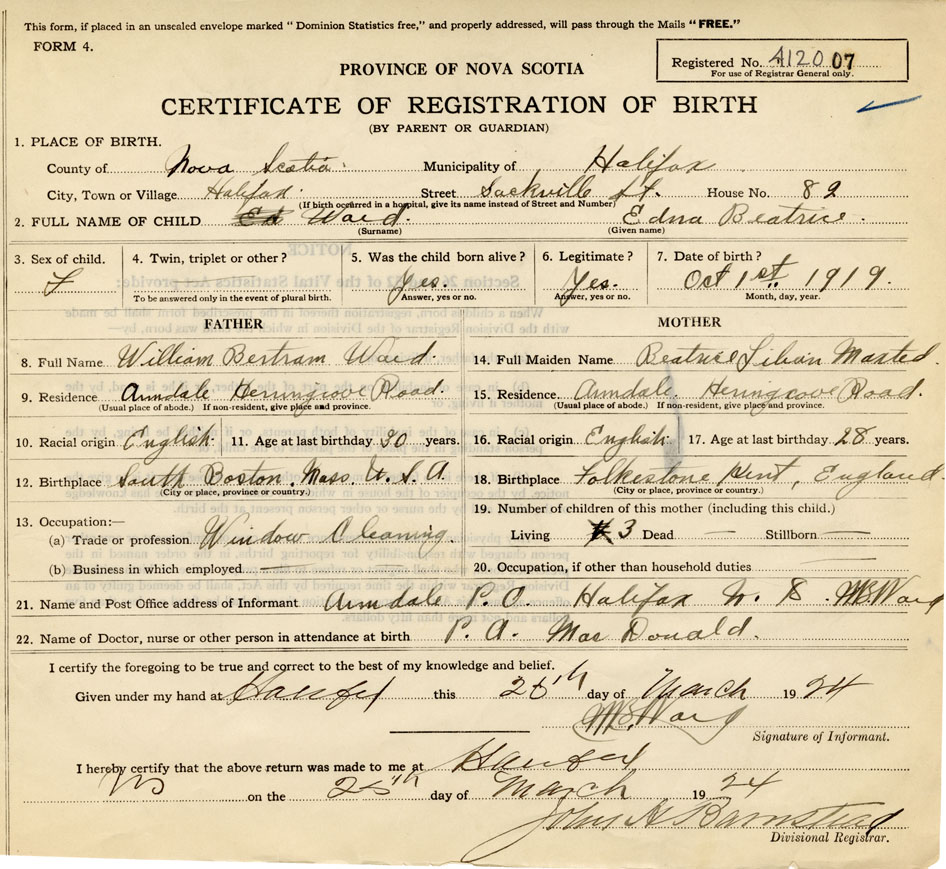 This form, if placed in an unsealed envelope marked "Dominion Statistics free," and properly addressed, will pass through the Mails "FREE."
FORM 4.
Registered No. 412007
For use of Registrar General only.
PROVINCE OF NOVA SCOTIA
CERTIFICATE OF REGISTRATION OF BIRTH
(BY PARENT OR GUARDIAN)
1. PLACE OF BIRTH.
County of Nova Scotia Municipality of Halifax
City, Town or Village Halifax Street Sackville St. House No. 82
(If birth occurred in a hospital, give its name instead of Street and Number)
2. FULL NAME OF CHILD Ward. Edna Beatrice.
(Surname) (Given name)
3. Sex of child. 4. Twin, triplet or other? 5. Was the child born alive? 6. Legitimate? 7. Date of birth?
F Yes. Yes. Oct 1st. 1919.
To be answered only in the event of plural birth. Answer, yes or no. Answer, yes or no. Month, day, year.
FATHER MOTHER
8. Full Name William Bertram Ward. 14. Full Maiden Name Beatrice Lilian Masted
9. Residence Armdale Herringcove Road 15. Residence. Armdale. Herringcove Road.
(Usual place of abode.) If non-resident, give place and province. (Usual place of abode.) If non-resident, give place and province.
10. Racial origin English. 11. Age at last birthday 30 years. 16. Racial origin English. 17. Age at last birthday 28 years.
12. Birthplace South Boston, Mass U. S. A 18. Birthplace Folkestone Kent, England.
(City or place, province or country.) (City or place, province or country.)
13. Occupation:— 19. Number of children of this mother (including this child.)
(a) Trade or profession Window Cleaning Living 3 Dead — Stillborn —
(b) Business in which employed 20. Occupation, if other than household duties
21. Name and Post Office address of Informant Armdale P.O. Halifax N. S. Ward
22. Name of Doctor, nurse or other person in attendance at birth P. A. Mac Donald.
I certify the foregoing to be true and correct to the best of my knowledge and belief.
Given under my hand at Halifax this 25th day of March 1924
Ward
Signature of Informant.
I hereby certify that the above return was made to me at Halifax
NS on the 25th day of March 1924
John H Barnstead
Divisional Registrar.